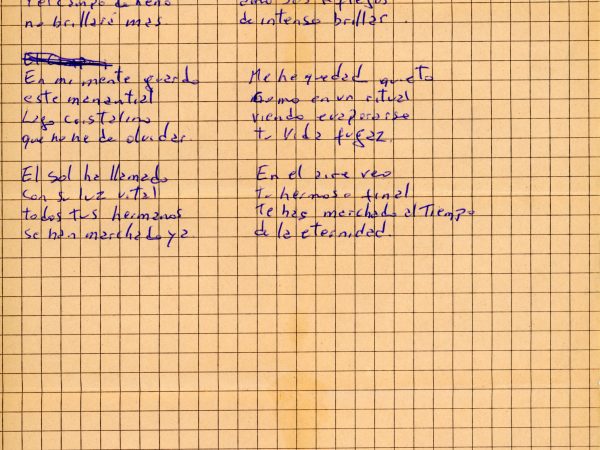 y el campo de heno
no brillará mas
En mi mente guardo
este manantial
Lago cristalino
que no he de olvidar.
El sol ha llamado
con su luz vital
todos tus hermanos
se han marchado ya
reflejos
de intenso brillar.
Me he quedad quieto
como en un ritual
viendo evaporarse
tu vida fugaz.
En el aire veo
tu hermoso final
te has marchado al Tiempo
de la eternidad.